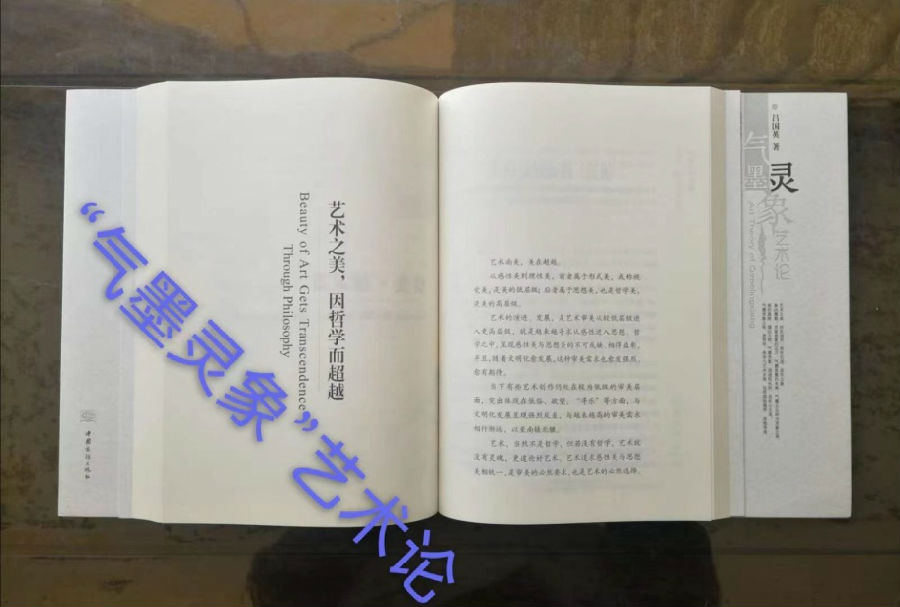 “气墨灵象”艺术论
艺术之美，因哲学而超越
Beauty of Art Gets Transcendence
Through Philosophy
艺术尚美，美在超越。
从感性美到理性美，前者属于形式美，或称视
觉美，是美的低层级；后者属于思想美，也是哲学美，
是美的高层级。
艺术的演进、发展，及艺术审美从较低层级进
入更高层级，就是越来越寻求从感性进入思想、哲
学之中，呈现感性美与思想美的不可或缺、相得益彰，
并且，随着文明化愈发展，这种审美需求也愈发强烈，
愈有期待。
当下有些艺术创作仍处在较为低级的审美层
面，突出体现在低俗、欲望、“寻乐”等方面，与
文明化发展呈现强烈反差，与越来越高的审美需求
相行渐远，以至南辕北辙。
艺术，当然不是哲学，但若没有哲学，艺术就
没有灵魂，更遑论好艺术。艺术追求感性美与思想
美相统一，是审美的必然要求，也是艺术的必然选择。
吕国英 著
气墨灵象艺术论